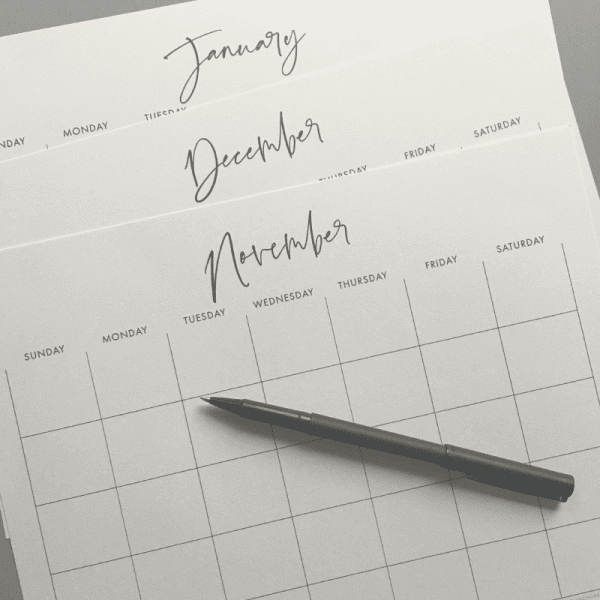 January
NDAY MONDAY TUESDAY
December
THURSDAY FRIDAY SATURDAY
November
SUNDAY MONDAY TUESDAY WEDNESDAY THURSDAY FRIDAY SATURDAY